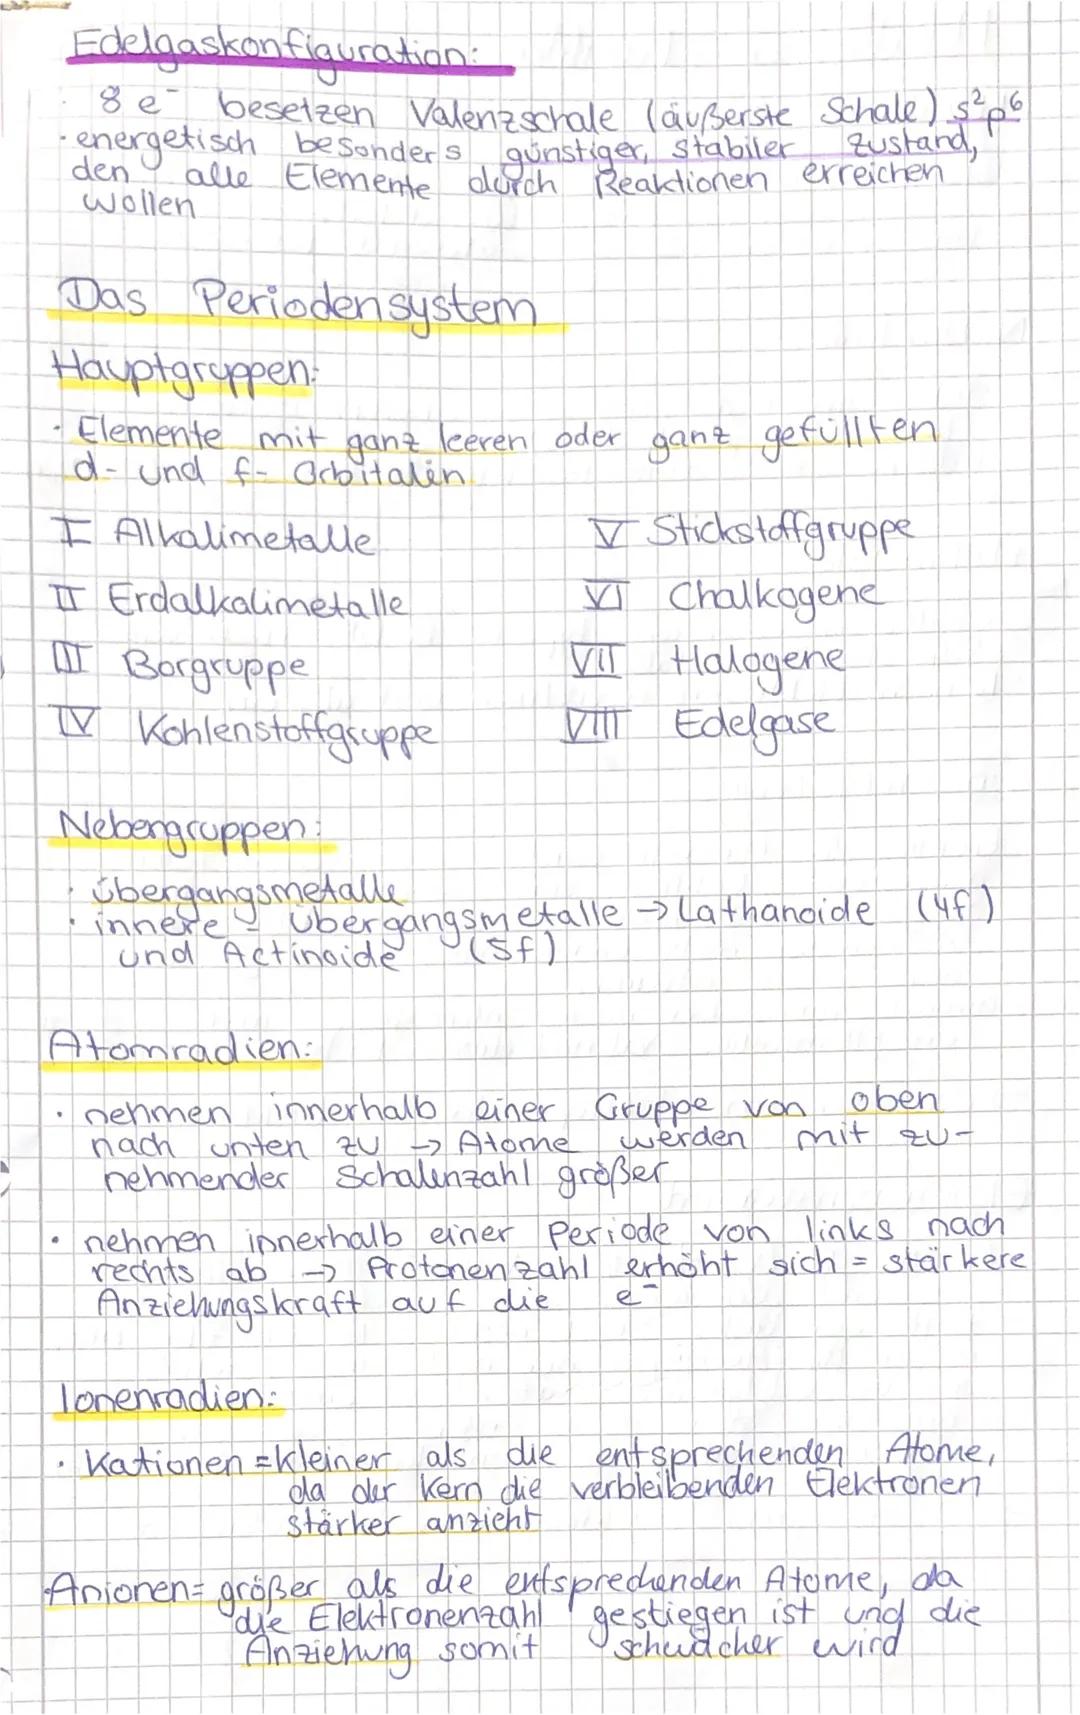 Edelgaskonfiguration:
· 8 e⁻ besetzen Valenzschale (äußerste Schale) s²p⁶
· energetisch besonders günstiger, stabiler Zustand,
den alle Elemente durch Reaktionen erreichen
wollen
Das Periodensystem
Hauptgruppen:
· Elemente mit ganz leeren oder ganz gefüllten
d- und f- Orbitalen
I Alkalimetalle
II Erdalkalimetalle
III Borgruppe
IV Kohlenstoffgruppe
V Stickstoffgruppe
VI Chalkogene
VII Halogene
VIII Edelgase
Nebengruppen:
· Übergangsmetalle
· innere - Übergangsmetalle → Lathanoide (4f)
und Actinoide (5f)
Atomradien:
· nehmen innerhalb einer Gruppe von oben
nach unten zu → Atome werden mit zu-
nehmender Schalenzahl größer
· nehmen innerhalb einer Periode von links nach
rechts ab → Protonenzahl erhöht sich = stärkere
Anziehungskraft auf die e⁻
Ionenradien:
· Kationen = kleiner als die entsprechenden Atome,
da der Kern die verbleibenden Elektronen
stärker anzieht
· Anionen = größer als die entsprechenden Atome, da
die Elektronenzahl gestiegen ist und die
Anziehung somit schwächer wird